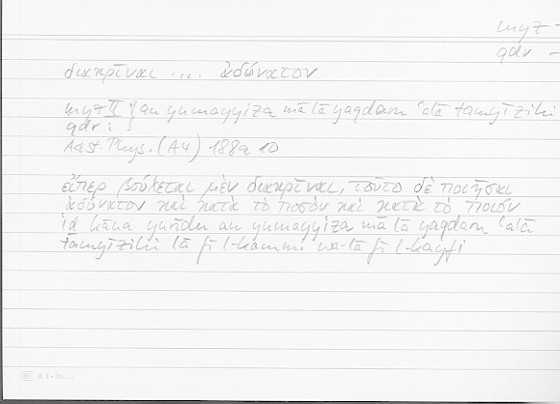 myz –
qdr –
διακρῖναι .... ἀδύνατον
myz II ; an yumayyiza mā lā yaqdaru ʿalā tamyīzihi
qdr : ;
Arist. Phys. (A4) 188a 10
εἴπερ βούλεται μὲν διακρῖναι, τοῦτο δὲ ποιῆσαι
ἀδύνατον καὶ κατὰ τὸ ποσὸν καὶ κατὰ τὸ ποιόν
iḏ kāna yurīdu an yumayyiza mā lā yaqdaru ʿalā
tamyīzihi lā fī l-kammi wa-lā fī l-kayfi